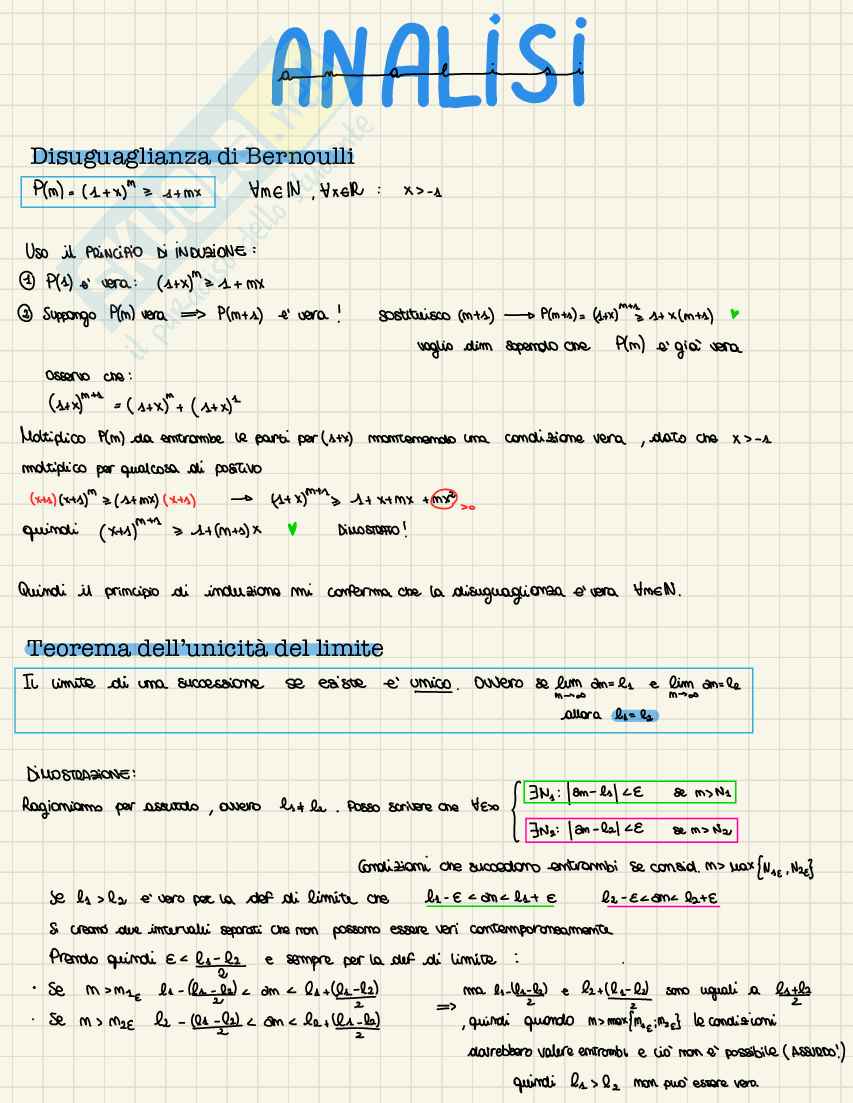 ANALISI
analisi
SKUOLA.net
il paradiso dello studente
Disuguaglianza di Bernoulli
P(m) = (1+x)^m ≥ 1+mx ∀m∈ℕ, ∀x∈ℝ : x>-1
Uso il PRINCIPIO DI INDUZIONE:
① P(1) e' vera: (1+x)^m ≥ 1+mx
② Suppongo P(m) vera ⟹ P(m+1) e' vera! sostituisco (m+1) ⟶ P(m+1) = (1+x)^{m+1} ≥ 1+x(m+1)
voglio dim sapendo che P(m) e' gia' vera
Osservo che:
(1+x)^{m+1} = (1+x)^m + (1+x)^1
Moltiplico P(m) da entrambe le parti per (1+x) mantenendo una condizione vera, dato che x>-1
moltiplico per qualcosa di positivo
(x+1)(x+1)^m ≥ (1+mx)(x+1) → (1+x)^{m+1} ≥ 1+x+mx+mx² >0
quindi (x+1)^{m+1} ≥ 1+(m+1)x DIMOSTRATO!
Quindi il principio di induzione mi conferma che la disuguaglianza e' vera ∀m∈ℕ.
Teorema dell'unicità del limite
IL limite di una successione se esiste e' unico. Ovvero se lim m→∞ am=l1 e lim m→∞ am=l2
allora l1=l2
DIMOSTRAZIONE:
Ragioniamo per assurdo, ovvero l1≠l2. Posso scrivere che ∀ε>0 { ∃N1: |am-l1|<ε se m>N1
∃N2: |am-l2|<ε se m>N2
Condizioni che succedono entrambi se consid. m>max{N1ε, N2ε}
Se l1>l2 e' vero per la def di limite che l1-ε<am<l1+ε l2-ε<am<l2+ε
Si creano due intervalli separati che non possono essere veri contemporaneamente
Prendo quindi ε < (l1-l2)/2 e sempre per la def di limite :
· Se m>m1ε l1-(l1-l2)/2 < am < l1+(l1-l2)/2
· Se m>m2ε l2-(l1-l2)/2 < am < l2+(l1-l2)/2
⟹ ma l1-(l1-l2)/2 e l2+(l1-l2)/2 sono uguali a (l1+l2)/2
, quindi quando m>max{m1ε; m2ε} le condizioni
dovrebbero valere entrambi e cio' non e' possibile (ASSURDO!)
quindi l1>l2 non puo' essere vera